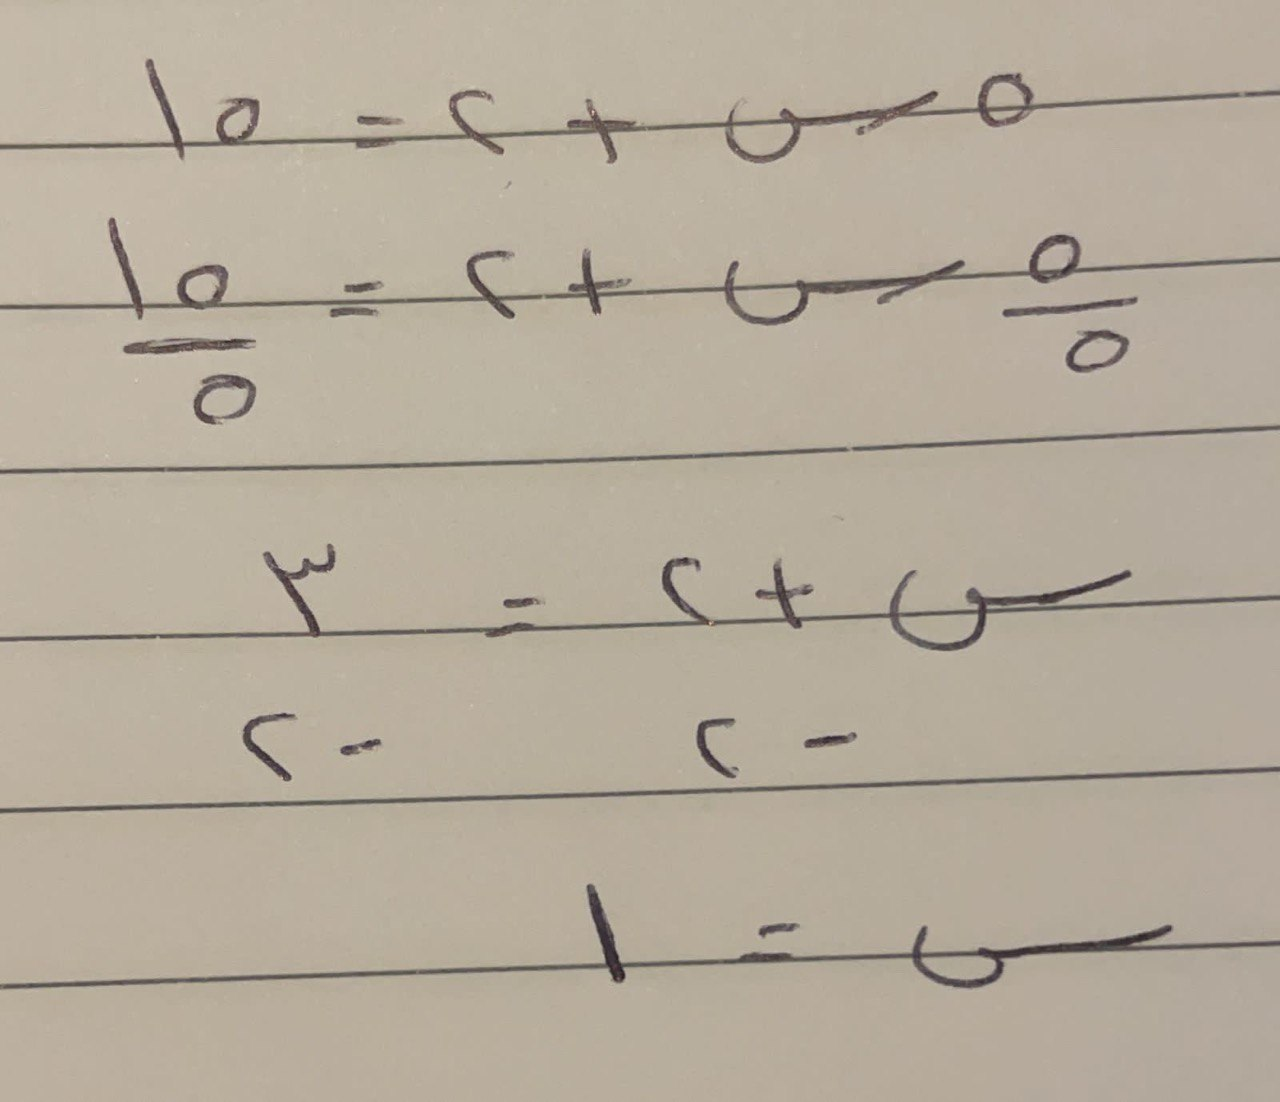 ٥ س + ٢ = ١٥
٥/٥ س + ٢ = ١٥/٥
س + ٢ = ٣
- ٢ - ٢
س = ١